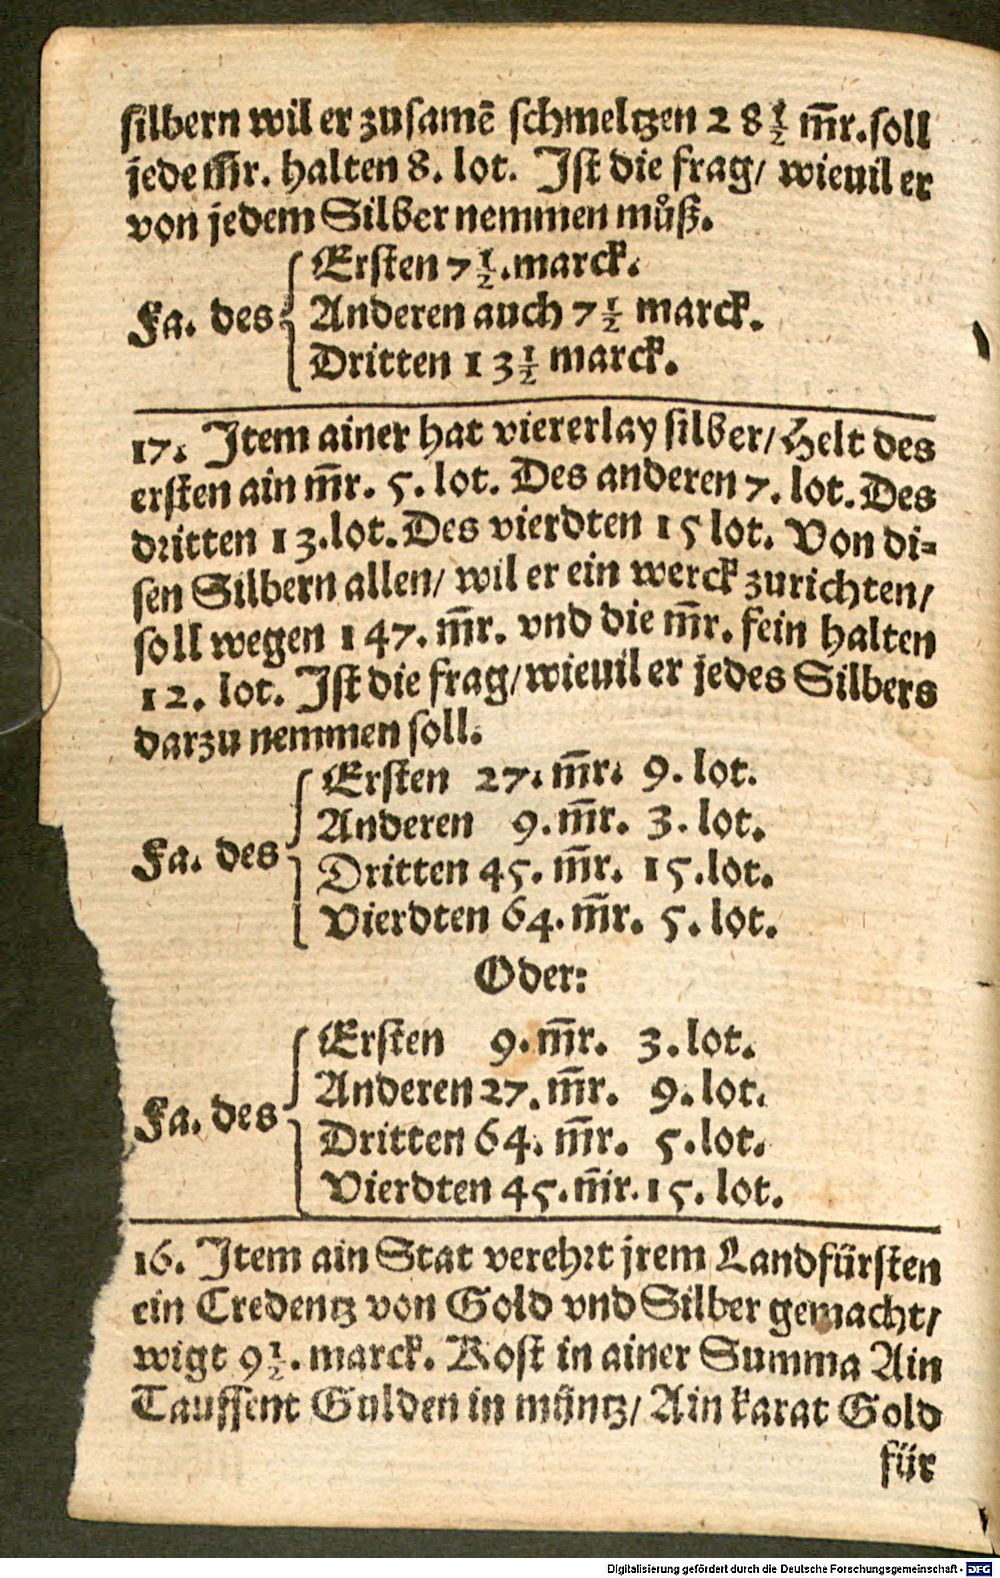 silbern wil er zusamē schmeltzen 28½ m̄r. soll
jede m̄r. halten 8. lot. Ist die frag/ wieuil er
von jedem Silber nemmen můß.
Ersten 7½. marck.
Fa. des Anderen auch 7½ marck.
Dritten 13½ marck.
17. Item ainer hat viererlay silber/ Helt des
ersten ain m̄r. 5. lot. Des anderen 7. lot. Des
dritten 13. lot. Des vierdten 15 lot. Von di=
sen Silbern allen/ wil er ein werck zurichten/
soll wegen 147. m̄r. vnd die m̄r. fein halten
12. lot. Ist die frag/ wieuil er jedes Silbers
darzu nemmen soll.
Ersten 27. m̄r. 9. lot.
Anderen 9. m̄r. 3. lot.
Fa. des
Dritten 45. m̄r. 15. lot.
Vierdten 64. m̄r. 5. lot.
Oder:
Ersten 9. m̄r. 3. lot.
Anderen 27. m̄r. 9. lot.
Fa. des
Dritten 64. m̄r. 5. lot.
Vierdten 45. m̄r. 15. lot.
16. Item ain Stat verehrt jrem Landfürsten
ein Credentz von Gold vnd Silber gemacht/
wigt 9½. marck. Kost in ainer Summa Ain
Taussent Gulden in müntz/ Ain karat Gold
für
Digitalisierung gefördert durch die Deutsche Forschungsgemeinschaft - DFG